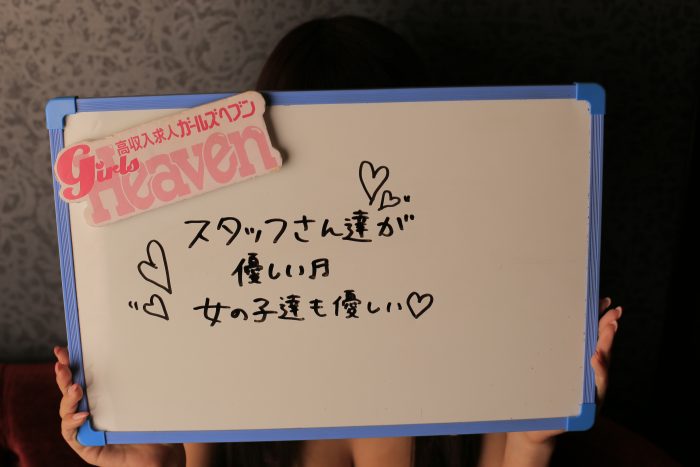 高収入求人ガールズヘブン
Girls
Heaven
スタッフさん達が
優しい♬
女の子達も優しい♡